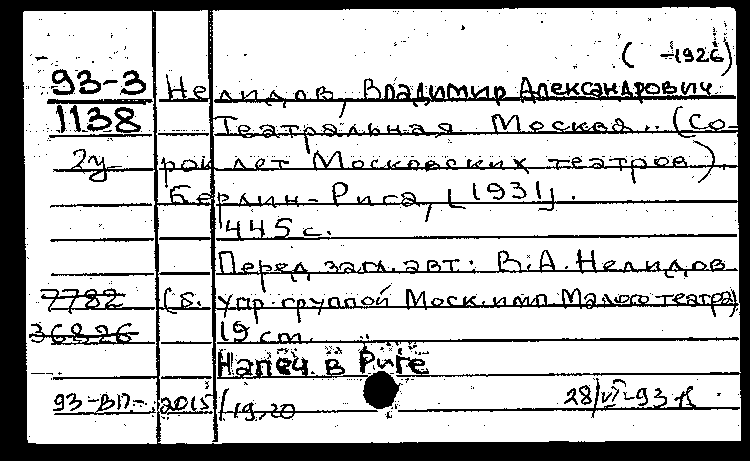 ( -1926)
93-3 Нелидов, Владимир Александрович
1138 Театральная Москва.. (Со-
2у рок лет Московских театров).
Берлин-Рига, [1931].
445 с.
Перед загл. авт.: В.А. Нелидов
7782 (б. упр. группой Моск. имп. Малого театра)
36826 19 см.
Напеч. в Риге
93-ВП- 2015/19,20 28/VI-93